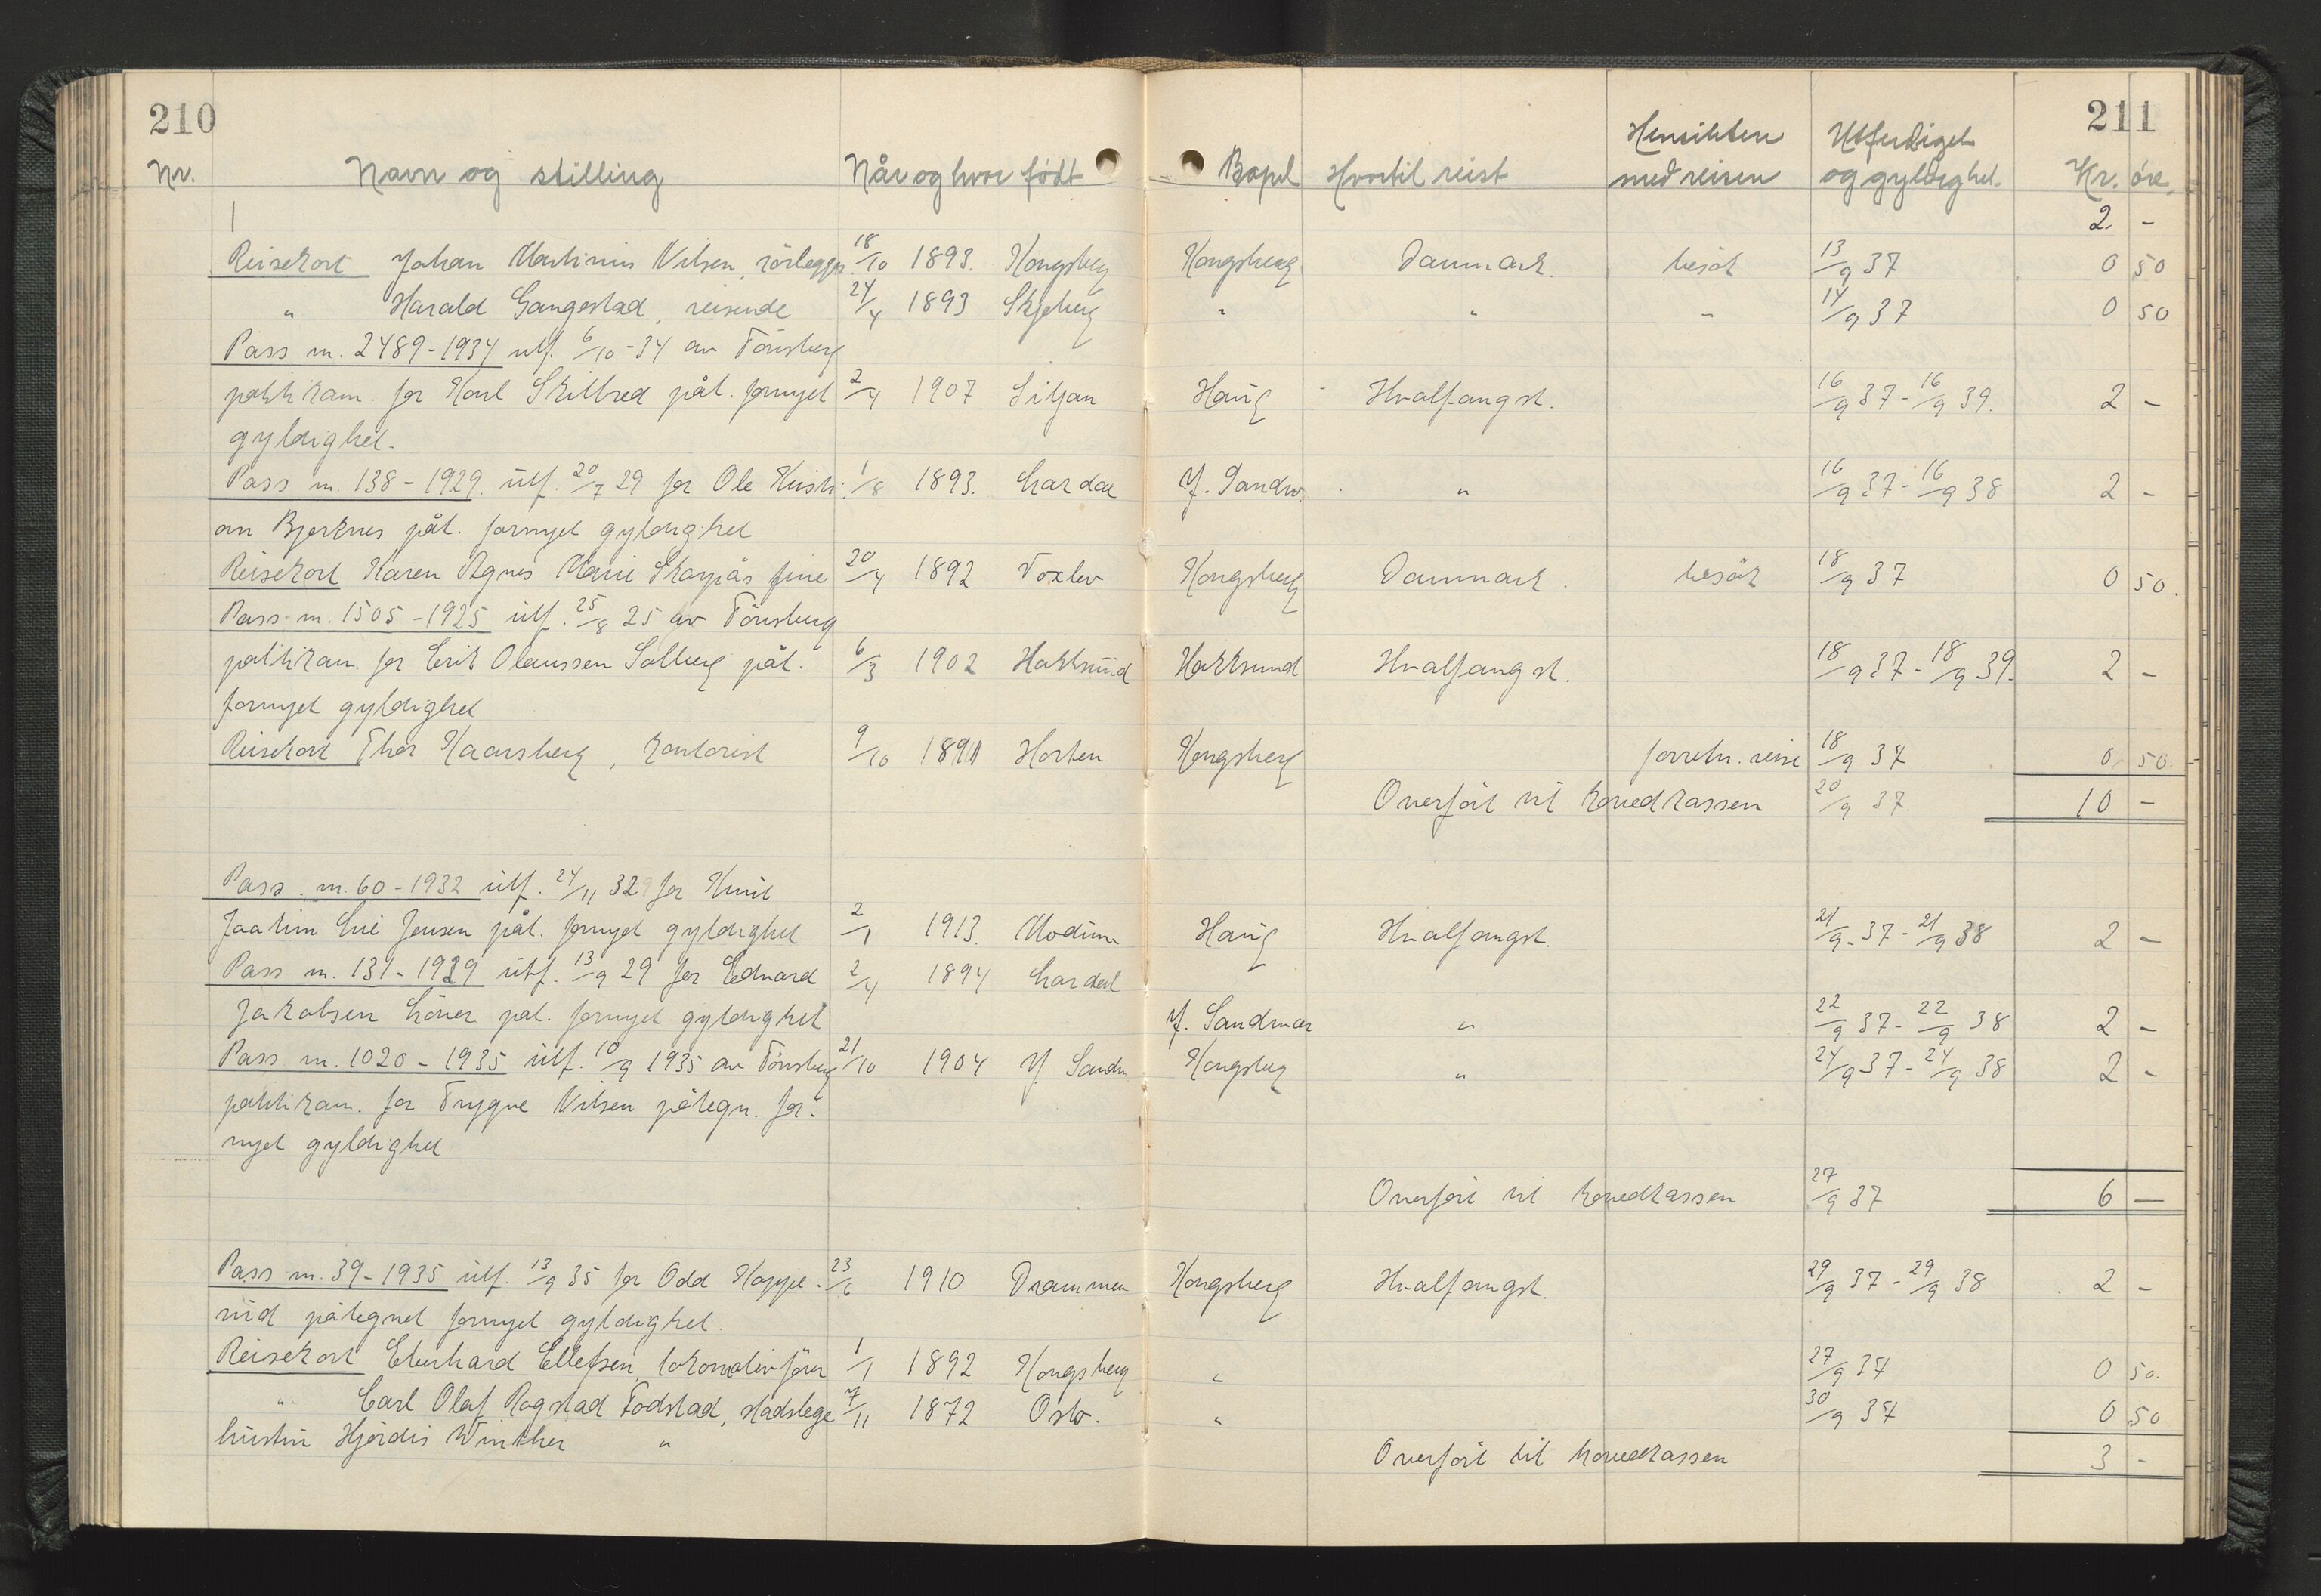 210
211
Nr. Navn og stilling Når og hvor født Bopel Hvortil reist Hensikten med reisen Utferdiget og gyldighet. Kr. øre
2 -
Reisekort Johan Martinius Nilsen, rörlegger 18/10 1893. Kongsberg Kongsberg Danmark. besök 13/9 37 0 50
" Harald Gangestad, reisende 24/4 1893 Skjeberg " " " 14/9 37 0 50
Pass nr. 2489-1934 utf. 6/10-34 av Tönsberg
politikam. for Karl Skilbred påt. fornyet 2/4 1907 Siljan Haug Hvalfangst. 16/9 37 - 16/9 39. 2 -
gyldighet.
Pass nr. 138-1929. utf. 20/7 29 for Ole Kristi- 1/8 1893. Lardal Y. Sandsv. " 16/9 37 - 16/9 38 2 -
an Bjerknes påt. fornyet gyldighet
Reisekort Karen Agnes Marie Skarpås frue 20/4 1892 Kongsberg Danmark. besök 18/9 37 0 50.
Pass nr. 1505-1925 utf. 25/8 25 av Tönsberg
politikam. for Erik Olaussen Solberg påt. 6/3 1902 Hokksund Hokksund Hvalfangst. 18/9 37 - 18/9 39. 2 -
fornyet gyldighet
Reisekort Thor Kaarsberg, kontorist 9/10 1891 Horten Kongsberg forretn. reise 18/9 37 0 50.
Overfört til hovedkassen 20/9 37. 10 -
Pass nr. 60-1932 utf. 24/11 32 for Knut
Joakim Lie Jensen påt. fornyet gyldighet 2/1 1913. Modum Haug Hvalfangst. 21/9 37 - 21/9 38 2 -
Pass nr. 131-1929 utf. 13/9 29 for Edvard 2/4 1894 Lardal
Jakobsen påt. fornyet gyldighet Y. Sandsvær " 22/9 37 - 22/9 38 2 -
Pass nr. 1020-1935 utf. 10/9 1935 av Tönsberg 21/10 1904 Y. Sandsv Kongsberg " 24/9 37 - 24/9 38 2 -
politikam. for Trygve Nilsen påtegn. for-
nyet gyldighet
Overfört til hovedkassen 27/9 37 6 -
Pass nr. 39-1935 utf. 13/9 35 for Odd Hoppe- 23/6 1910 Drammen Kongsberg Hvalfangst. 29/9 37 - 29/9 38 2 -
rud påtegnet fornyet gyldighet.
Reisekort Eberhard Ellefsen, lokomotivförer 1/1 1892 Kongsberg " 27/9 37 0 50.
" Carl Olaf Rogstad Todstad, stadslege 7/11 1872 Oslo. " 30/9 37 0 50
hustru Hjördis Winther "
Overfört til hovedkassen 3 -